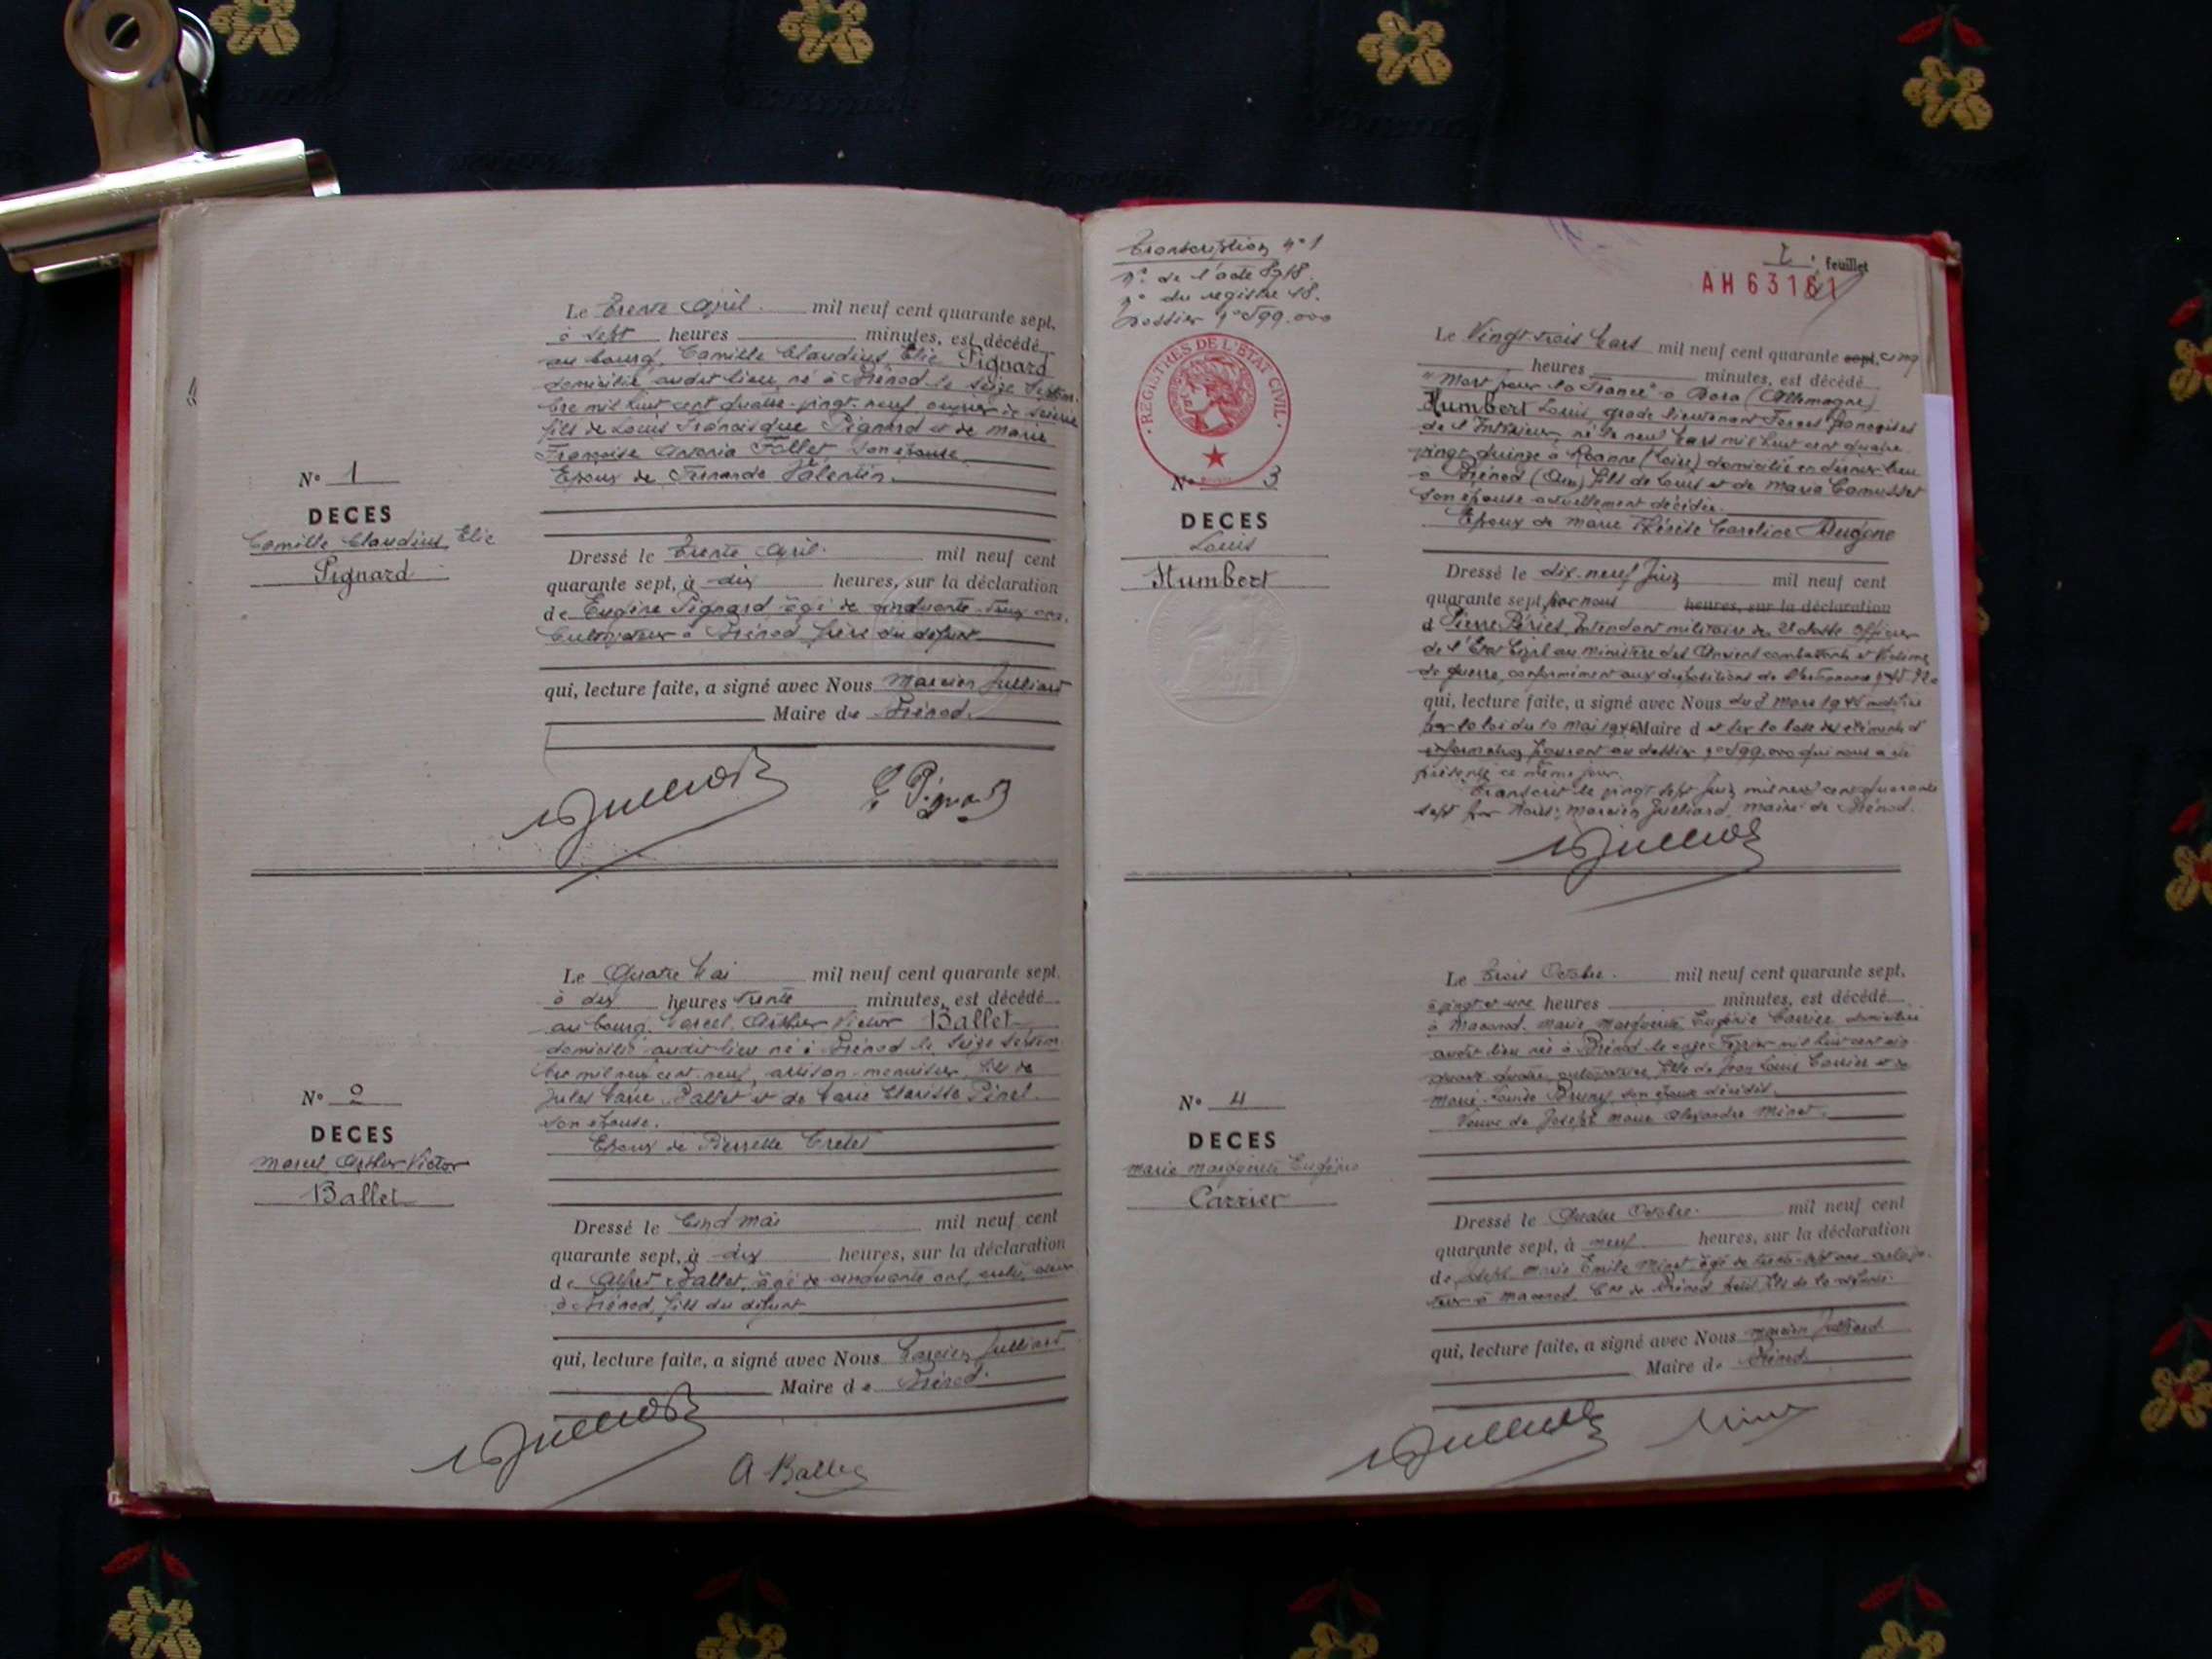 Le Trente Avril mil neuf cent quarante sept,
à sept heures minutes, est décédé
au bourg, Camille Claudius Elie Pignard
domicilié audit lieu, né à Brénod le seize Septem-
bre mil huit cent quatre-vingt-neuf, ouvrier de scierie
fils de Louis Francisque Pignard et de Marie
Françoise Follet, son épouse
Epoux de Fernande Valentin.
N° 1
DECES
Camille Claudius Elie
Pignard
Dressé le Trente Avril mil neuf cent
quarante sept, à dix heures, sur la déclaration
de Eugène Pignard âgé de cinquante ans,
Cultivateur à Brénod, frère du défunt
qui, lecture faite, a signé avec Nous Marcien Julliard
Maire de Brénod.
E Pignard
Le Quatre Mai mil neuf cent quarante sept.
à dix heures trente minutes, est décédé
au bourg, Marcel Arthur Victor Ballet
domicilié audit lieu né à Brénod le seize Septem
bre mil neuf cent neuf, artisan-menuisier, fils de
Jules Marie Ballet et de Marie Clarisse Pinel
son épouse.
Epoux de Pierrette Cretet
N° 2
DECES
Marcel Arthur Victor
Ballet
Dressé le Cinq mai mil neuf cent
quarante sept, à dix heures, sur la déclaration
de Alfred Ballet, âgé de cinquante ans,
à Brénod, fils du défunt
qui, lecture faite, a signé avec Nous Marcien Julliard
Maire de Brénod.
A Ballet
Transcription n° 1
n° de l'acte 8918.
n° du registre 18.
Dossier n° 599.000
feuillet
AH 6316
REGISTRES DE L'ETAT CIVIL
Le Vingt trois Mars mil neuf cent quarante sept. cinq
heures minutes, est décédé
"Mort pour la France" à Dora (Allemagne)
Humbert Louis, grade lieutenant Forces françaises
de l'Intérieur, né le neuf Mars mil huit cent quatre
vingt quinze à Roanne (Loire) domicilié en dernier lieu
à Brénod (Ain) fils de Louis et de Marie Camusset
son épouse actuellement décédée.
Epoux de Marie Thérèse Caroline Mugène
N° 3
DECES
Louis
Humbert
Dressé le dix-neuf Juin mil neuf cent
quarante sept par nous heures, sur la déclaration
d Pierre Périès, Intendant militaire de 2e classe Officier
de l'Etat Civil au ministère des Anciens combattants et Victimes
de guerre, conformément aux dispositions de l'ordonnance
qui, lecture faite, a signé avec Nous du 3 mars 1945 modifiée
par la loi du 10 mai 1946 Maire d et sur la base des éléments d'
information figurant au dossier n° 599.000 qui nous a été
présenté ce même jour.
Transcrit le vingt sept Juin mil neuf cent quarante
sept par Nous, Marcien Julliard, maire de Brénod.
Le trois Octobre mil neuf cent quarante sept.
à vingt et une heures minutes, est décédé
à Macconod, Marie Marguerite Eugénie Carrier domiciliée
audit lieu née à Brénod le onze Février mil huit cent cin
quante quatre, cultivatrice, fille de Jean Louis Carrier et de
Marie Louise Bruny, son épouse décédés.
Veuve de Joseph Marie Alexandre Minet.
N° 4
DECES
Marie Marguerite Eugénie
Carrier
Dressé le Quatre Octobre mil neuf cent
quarante sept, à neuf heures, sur la déclaration
de Joseph Marie Emile Minet âgé de trente-sept ans, cultiva-
teur à Macconod, Cne de Brénod petit fils de la défunte
qui, lecture faite, a signé avec Nous Marcien Julliard
Maire de Brénod
Minet